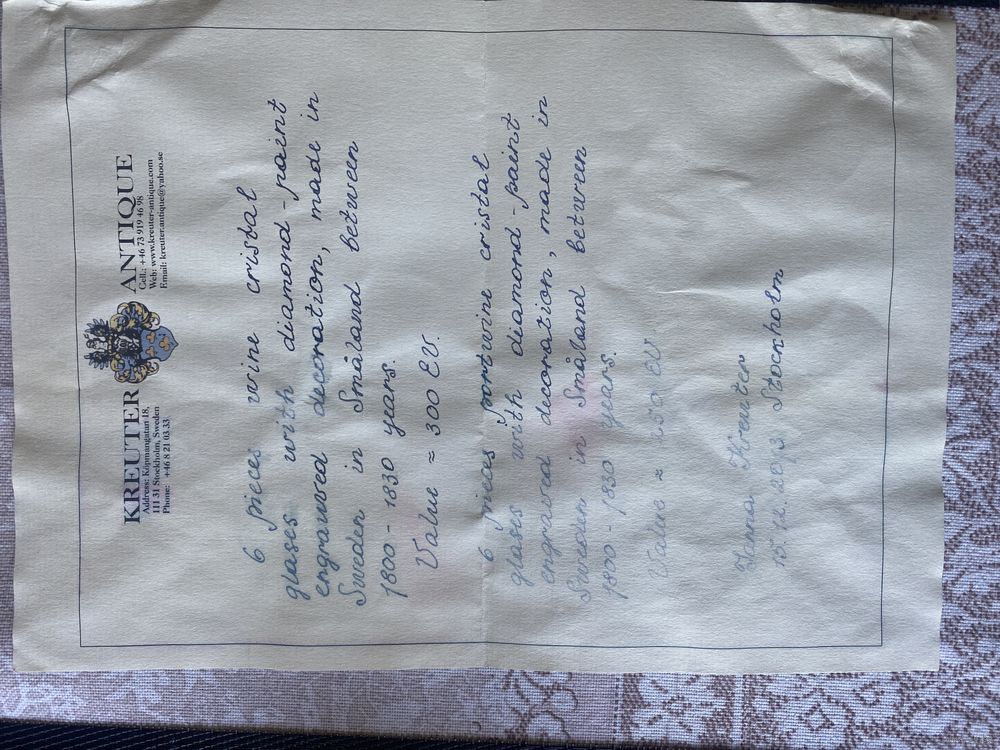 KREUTER ANTIQUE
Address: Köpmangatan 18,
111 31 Stockholm, Sweden
Phone: +46 8 21 03 33
Cell.: +46 73 919 46 98
Web: www.kreuter-antique.com
Email: kreuter.antique@yahoo.se
6 pieces wine cristal
glases with diamond-paint
engrauved decoration, made in
Sweden in Småland between
1800-1830 years.
Value ≈ 300 EU.
6 pieces portwine cristal
glases with diamond-paint
engraved decoration, made in
Sweden in Småland between
1800-1830 years.
Value ≈ 250 EU
Kreuter
Stockholm